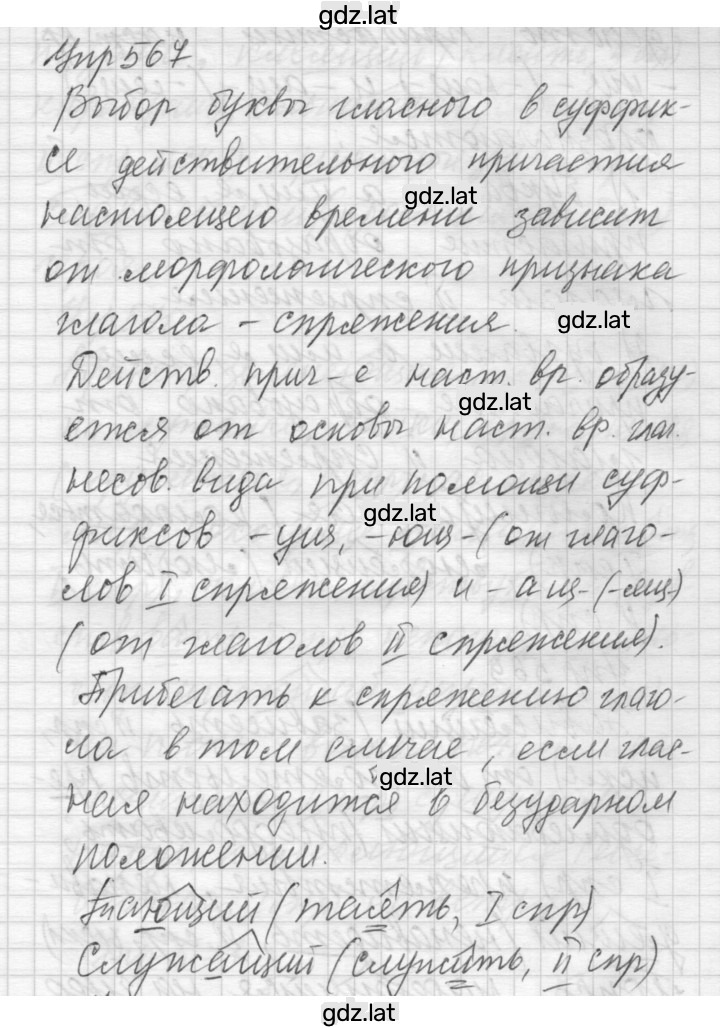 gdz.lat
Упр 567
Выбор буквы гласного в суффик-
се действительного причастия
gdz.lat
настоящего времени зависит
от морфологического признака
глагола - спряжения.
gdz.lat
Действ. прич-е наст. вр. образу-
gdz.lat
ется от основы наст. вр. глаг.
несов. вида при помощи суф-
gdz.lat
фиксов -ущ, -ющ- (от глаго-
лов I спряжения) и -ащ- (-ящ-)
(от глаголов II спряжения).
Прибегать к спряжению глаго-
ла в том случае, если глас-
gdz.lat
ная находится в безударном
положении.
Тающий (таять, I спр)
Служащий (служить, II спр)
gdz.lat